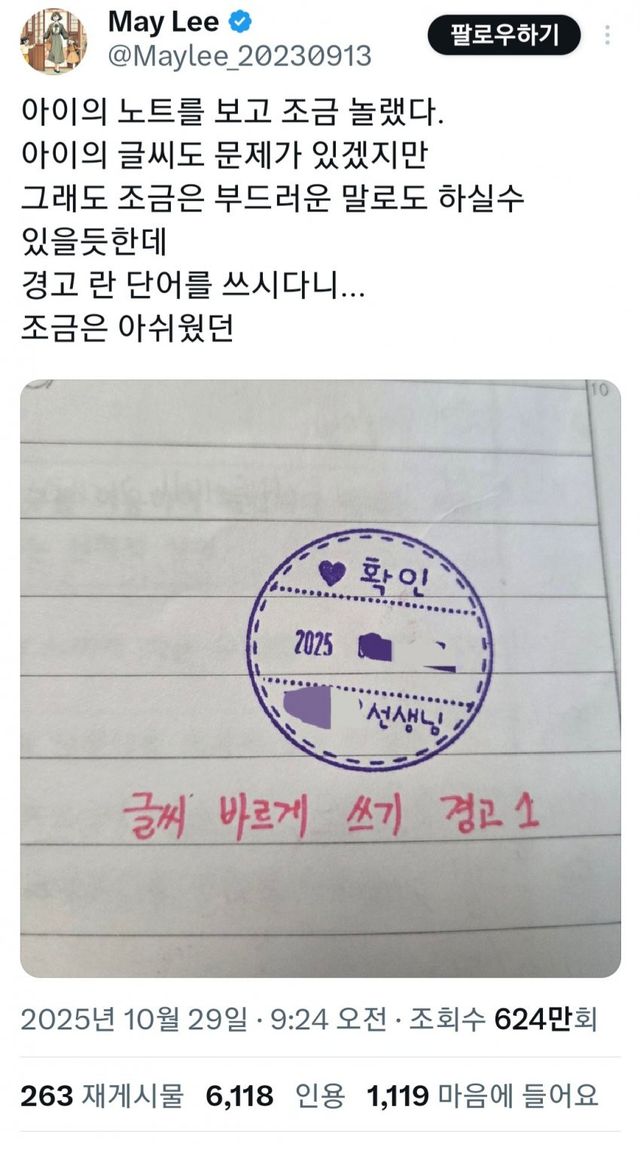 May Lee
@Maylee_20230913
팔로우하기
아이의 노트를 보고 조금 놀랬다.
아이의 글씨도 문제가 있겠지만
그래도 조금은 부드러운 말로도 하실수
있을듯한데
경고 란 단어를 쓰시다니...
조금은 아쉬웠던
10
확인
2025
선생님
글씨 바르게 쓰기 경고 1
2025년 10월 29일 · 9:24 오전 · 조회수 624만회
263 재게시물 6,118 인용 1,119 마음에 들어요